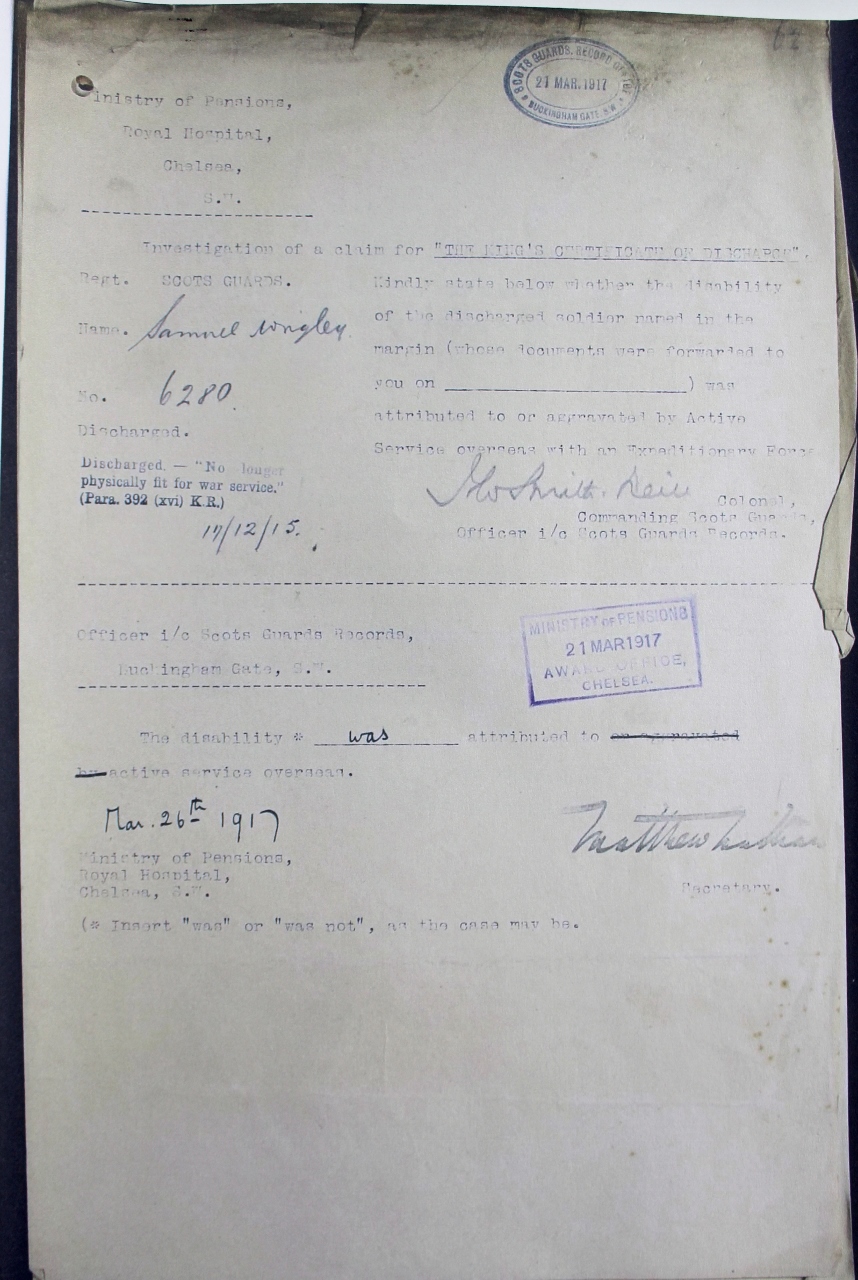 62
SCOTS GUARDS, RECORD OFFICE
21 MAR. 1917
BUCKINGHAM GATE. S.W.
Ministry of Pensions,
Royal Hospital,
Chelsea,
S.W.
Investigation of a claim for "THE KING'S CERTIFICATE OF DISCHARGE".
Regt. SCOTS GUARDS.
Name. Samuel Wrigley
No. 6280
Discharged.
Discharged. — "No longer
physically fit for war service."
(Para. 392 (xvi) K.R.)
17/12/15.
Kindly state below whether the disability
of the discharged soldier named in the
margin (whose documents were forwarded to
you on ____________________) was
attributed to or aggravated by Active
Service overseas with an Expeditionary Force
Smith. Neill Colonel,
Commanding Scots Guards,
Officer i/c Scots Guards Records.
Officer i/c Scots Guards Records,
Buckingham Gate, S.W.
MINISTRY OF PENSIONS
21 MAR 1917
AWARD OFFICE,
CHELSEA.
The disability * was attributed to or aggravated
by active service overseas.
Mar. 26th 1917
Matthew Nathan
Ministry of Pensions,
Royal Hospital,
Chelsea, S.W.
Secretary.
(* Insert "was" or "was not", as the case may be.